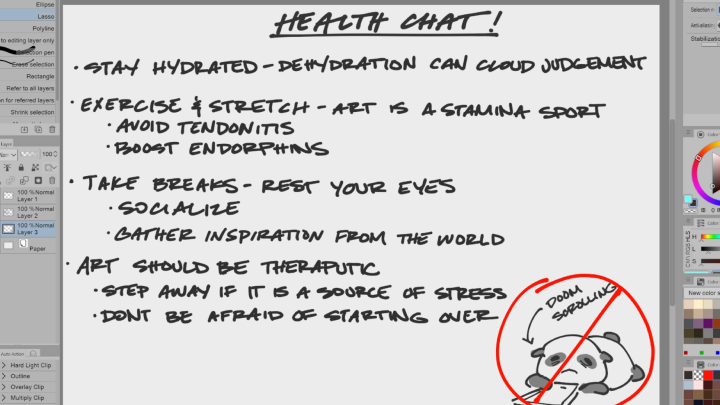 HEALTH CHAT!
• STAY HYDRATED - DEHYDRATION CAN CLOUD JUDGEMENT
• EXERCISE & STRETCH - ART IS A STAMINA SPORT
• AVOID TENDONITIS
• BOOST ENDORPHINS
• TAKE BREAKS - REST YOUR EYES
• SOCIALIZE
• GATHER INSPIRATION FROM THE WORLD
• ART SHOULD BE THERAPUTIC
• STEP AWAY IF IT IS A SOURCE OF STRESS
• DONT BE AFRAID OF STARTING OVER
DOOM
SCROLLING
Ellipse
Lasso
Polyline
to editing layer only
Selection pen
Erase selection
Rectangle
Refer to all layers
on for referred layers
Shrink selection
Layer
100
100 %Normal
Layer 1
100 %Normal
Layer 2
100 %Normal
Layer 3
Paper
Auto Action
Hard Light Clip
Outline
Overlay Clip
Multiply Clip
Selection m
Anti-aliasing
Stabilization
Color
H
L
S
Color
New color s
Color